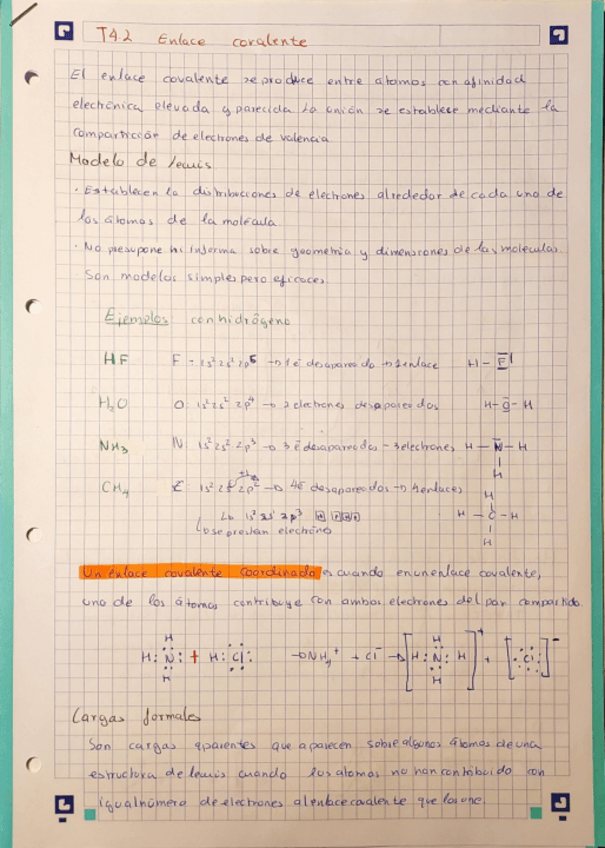 T4.2 Enlace covalente
El enlace covalente se produce entre átomos con afinidad
electrónica elevada y parecida La unión se establece mediante la
compartición de electrones de valencia
Modelo de lewis
· Establecen la distribucciones de electrones alrededor de cada uno de
los átomos de la molécula
· No presupone ni informa sobre geometría y dimensiones de las moléculas.
Son modelos simples pero eficaces.
Ejemplos: con hidrógeno
HF F = 1s² 2s² 2p⁵ → 1 é desapareado → 1 enlace H - F
H₂O O: 1s² 2s² 2p⁴ → 2 electrones desapareados H - O - H
NH₃ N: 1s² 2s² 2p³ → 3 é desapareados - 3 electrones H - N - H
H
CH₄ C: 1s² 2s² 2p² → 4é desapareados → 4 enlaces H
↳ 1s² 2s¹ 2p³ H - C - H
↳ se prestan electrones H
Un enlace covalente coordinado es cuando en un enlace covalente,
uno de los átomos contribuye con ambos electrones del par compartido.
H H
H : N : + H : Cl : → NH₄⁺ + Cl⁻ → [H : N : H]⁺ + [: Cl :]⁻
H H
Cargas formales
Son cargas aparentes que aparecen sobre algunos átomos de una
estructura de lewis cuando los atomos no han contribuido con
igual número de electrones al enlace covalente que los une.